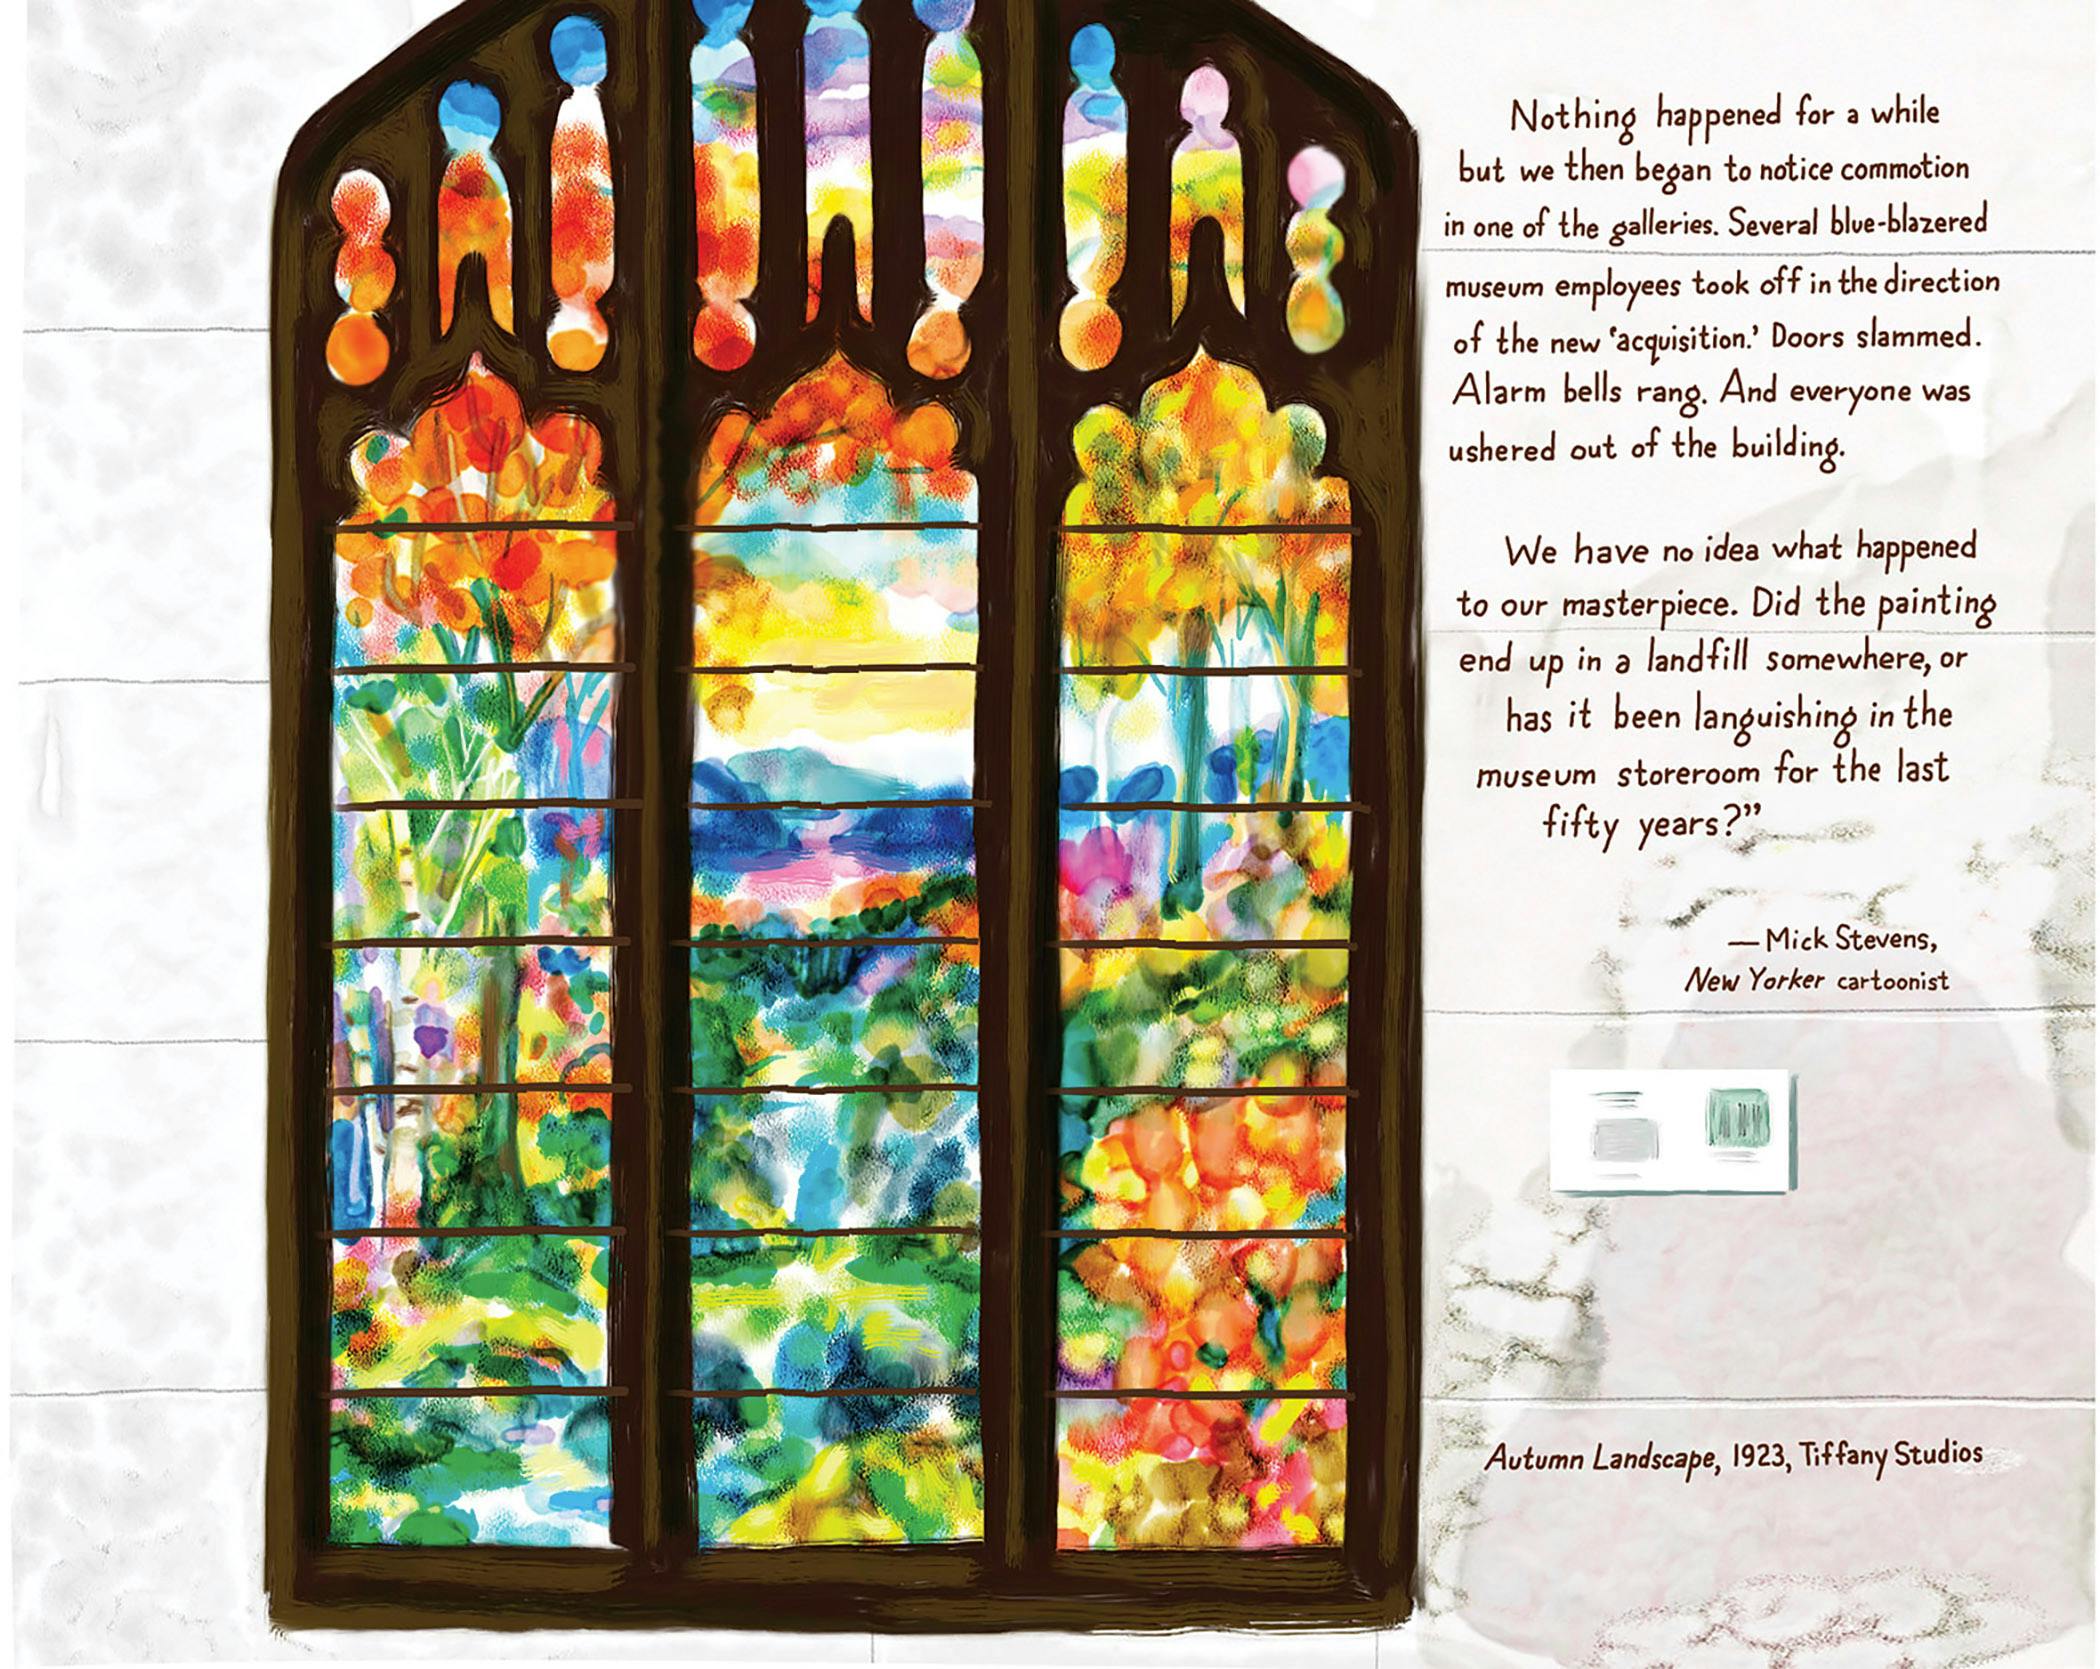 Nothing happened for a while
but we then began to notice commotion
in one of the galleries. Several blue-blazered
museum employees took off in the direction
of the new ‘acquisition.’ Doors slammed.
Alarm bells rang. And everyone was
ushered out of the building.
We have no idea what happened
to our masterpiece. Did the painting
end up in a landfill somewhere, or
has it been languishing in the
museum storeroom for the last
fifty years?”
— Mick Stevens,
New Yorker cartoonist
Autumn Landscape, 1923, Tiffany Studios